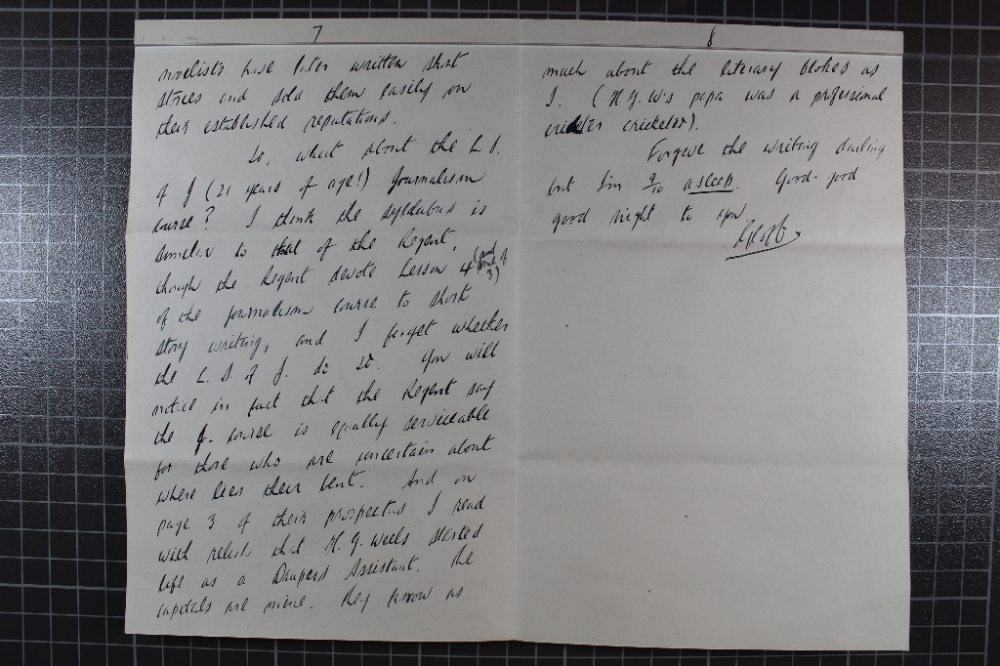 7
novelists have later written short
stories and sold them easily on
their established reputations.
So, what about the L.S.
of J (21 years of age!) Journalism
course? I think the syllabus is
similar to that of the Regent,
though the Regent devote Lesson 4 (and
of 3)
of the journalism course to short
story writing, and I forget whether
the L.S of J. do so. You will
notice in fact that the Regent say
the J. course is equally serviceable
for those who are uncertain about
where lies their bent. And on
page 3 of their prospectus I read
with relish that H.G. Wells started
life as a Drapers Assistant. The
capitals are mine. They know as
8
much about the literary blokes as
I. (H.G.W's papa was a professional
cricketer).
Forgive the writing darling
but I'm 9/10 asleep. Good-good
good night to you